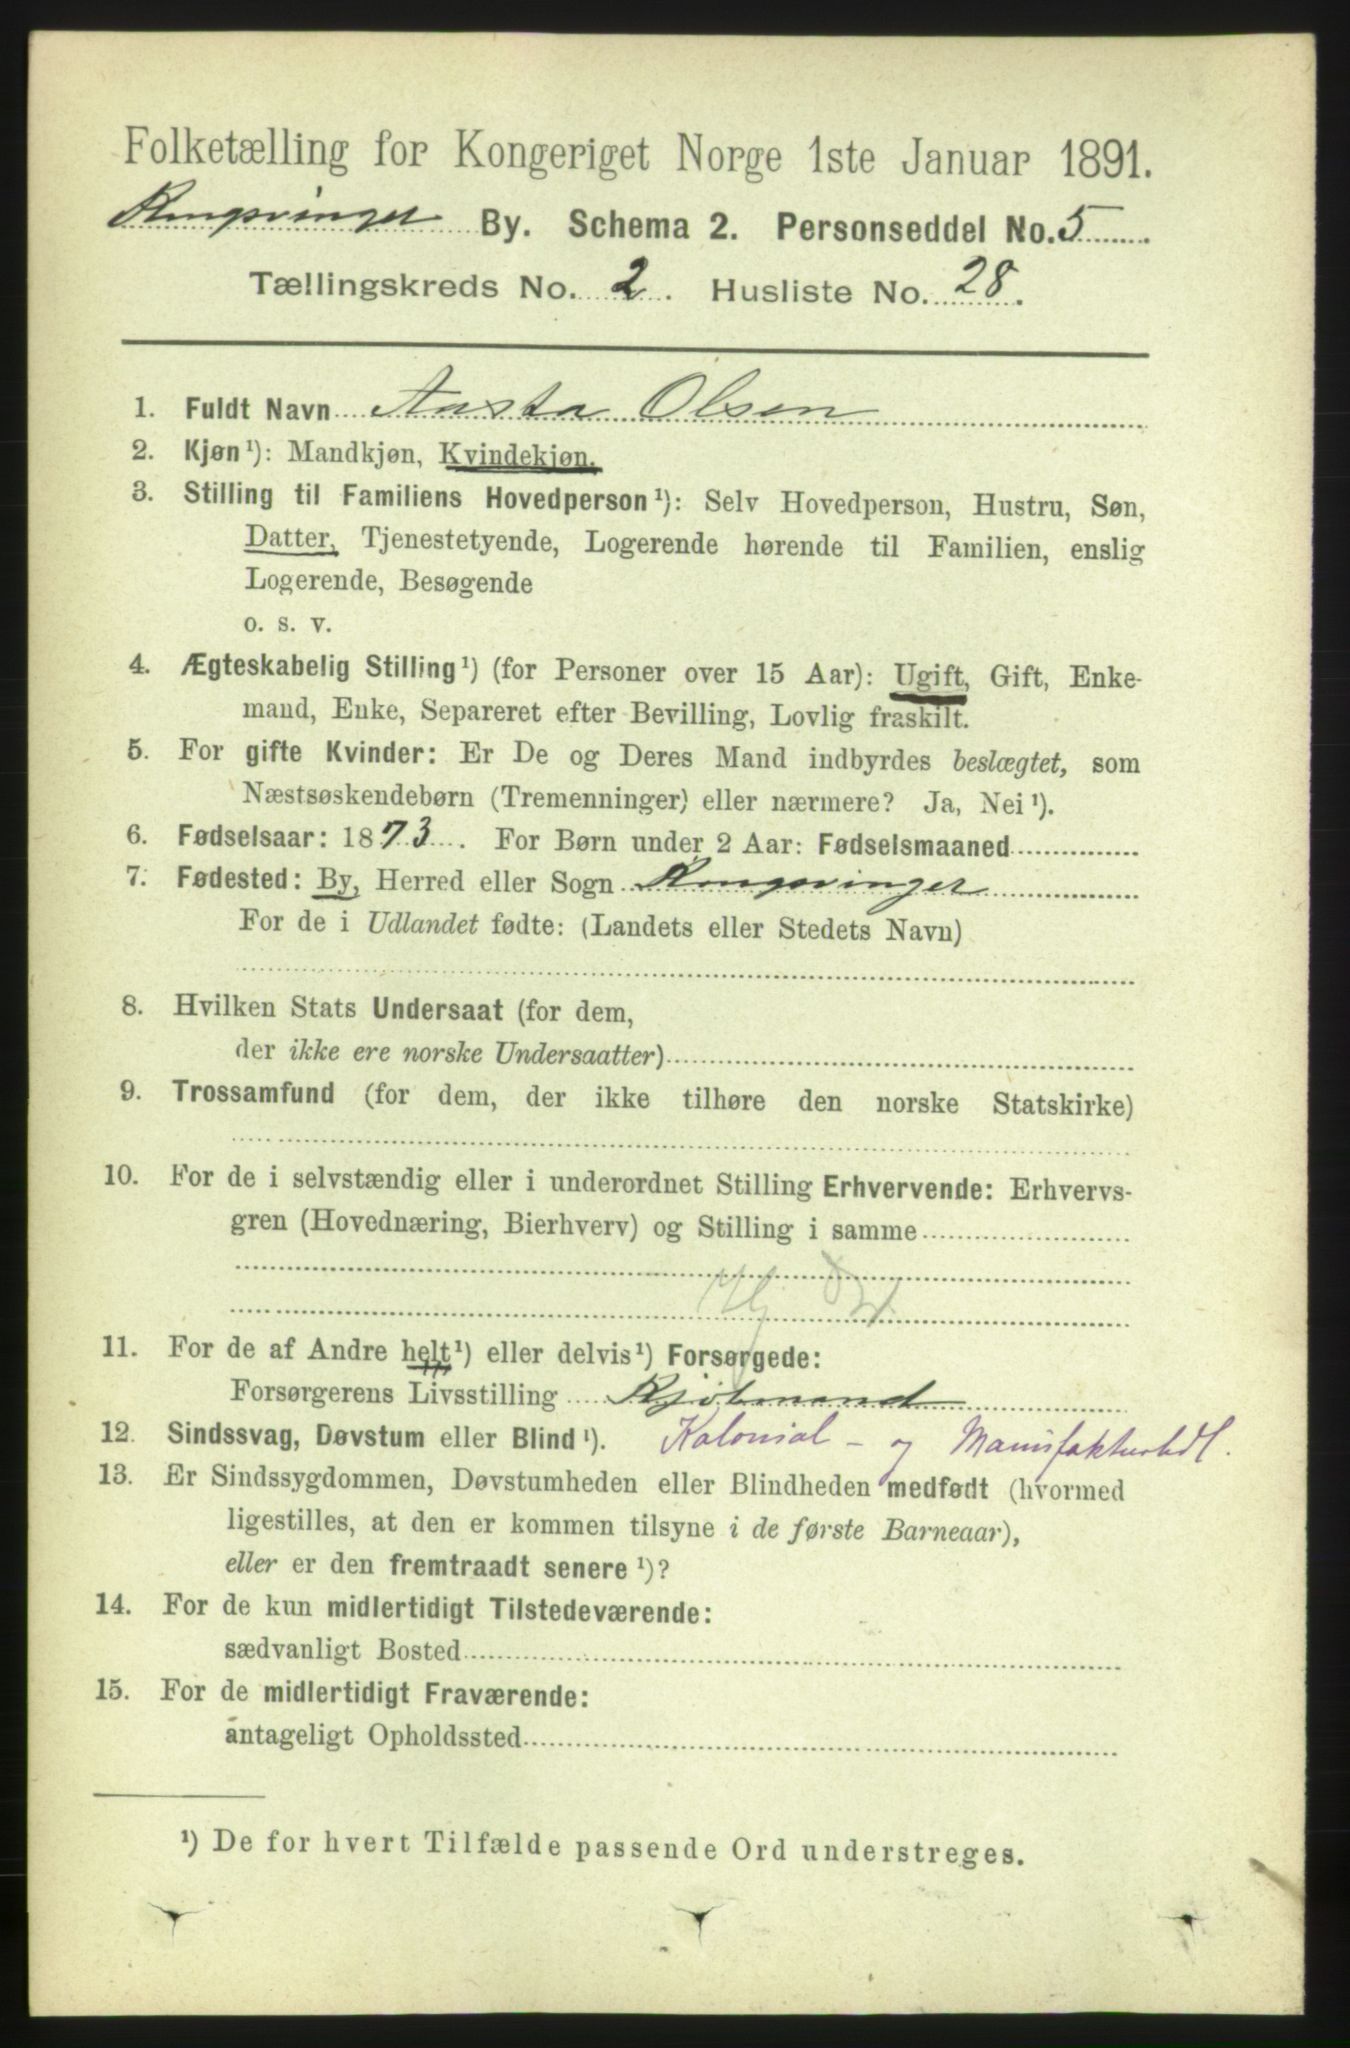 Folketælling for Kongeriget Norge 1ste Januar 1891.
Kongsvinger By. Schema 2. Personseddel No. 5
Tællingskreds No. 2. Husliste No. 28.
1. Fuldt Navn Aasta Olsen
2. Kjøn¹): Mandkjøn, Kvindekjøn.
3. Stilling til Familiens Hovedperson¹): Selv Hovedperson, Hustru, Søn,
Datter, Tjenestetyende, Logerende hørende til Familien, enslig
Logerende, Besøgende
o. s. v.
4. Ægteskabelig Stilling¹) (for Personer over 15 Aar): Ugift, Gift, Enke-
mand, Enke, Separeret efter Bevilling, Lovlig fraskilt.
5. For gifte Kvinder: Er De og Deres Mand indbyrdes beslægtet, som
Næstsøskendebørn (Tremenninger) eller nærmere? Ja, Nei¹).
6. Fødselsaar: 1873. For Børn under 2 Aar: Fødselsmaaned
7. Fødested: By, Herred eller Sogn Kongsvinger
For de i Udlandet fødte: (Landets eller Stedets Navn)
8. Hvilken Stats Undersaat (for dem,
der ikke ere norske Undersaatter)
9. Trossamfund (for dem, der ikke tilhøre den norske Statskirke)
10. For de i selvstændig eller i underordnet Stilling Erhvervende: Erhvervs-
gren (Hovednæring, Bierhverv) og Stilling i samme
11. For de af Andre helt¹) eller delvis¹) Forsørgede:
Forsørgerens Livsstilling Kjøbmand
12. Sindssvag, Døvstum eller Blind¹). Kolonial- og Manufakturhdl.
13. Er Sindssygdommen, Døvstumheden eller Blindheden medfødt (hvormed
ligestilles, at den er kommen tilsyne i de første Barneaar),
eller er den fremtraadt senere¹)?
14. For de kun midlertidigt Tilstedeværende:
sædvanligt Bosted
15. For de midlertidigt Fraværende:
antageligt Opholdssted
¹) De for hvert Tilfælde passende Ord understreges.